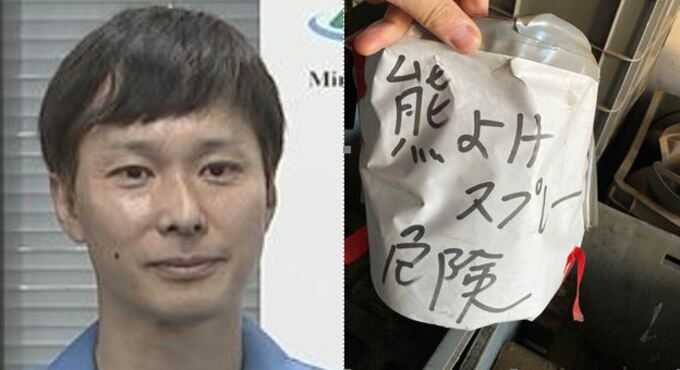 Min
熊よけ
スプレー
危険